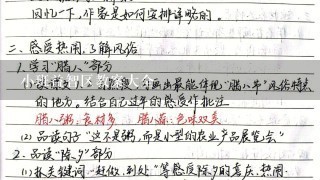 回忆一下，作家是如何安排详略的。
二、感受热闹，了解风俗
1. 学习“腊八”部分
小班益智区教案大全
画出最能体现“腊八节”风俗特点
的地方。结合自己过年的感受作批注
腊八粥：食材多 腊八蒜：色味双美
(2) 品读句子“这不是粥，而是小型的农业产品展览会”
2. 品读“除夕”部分
(1) 抓关键词“赶做、到处”等感悟除夕的喜庆、热闹